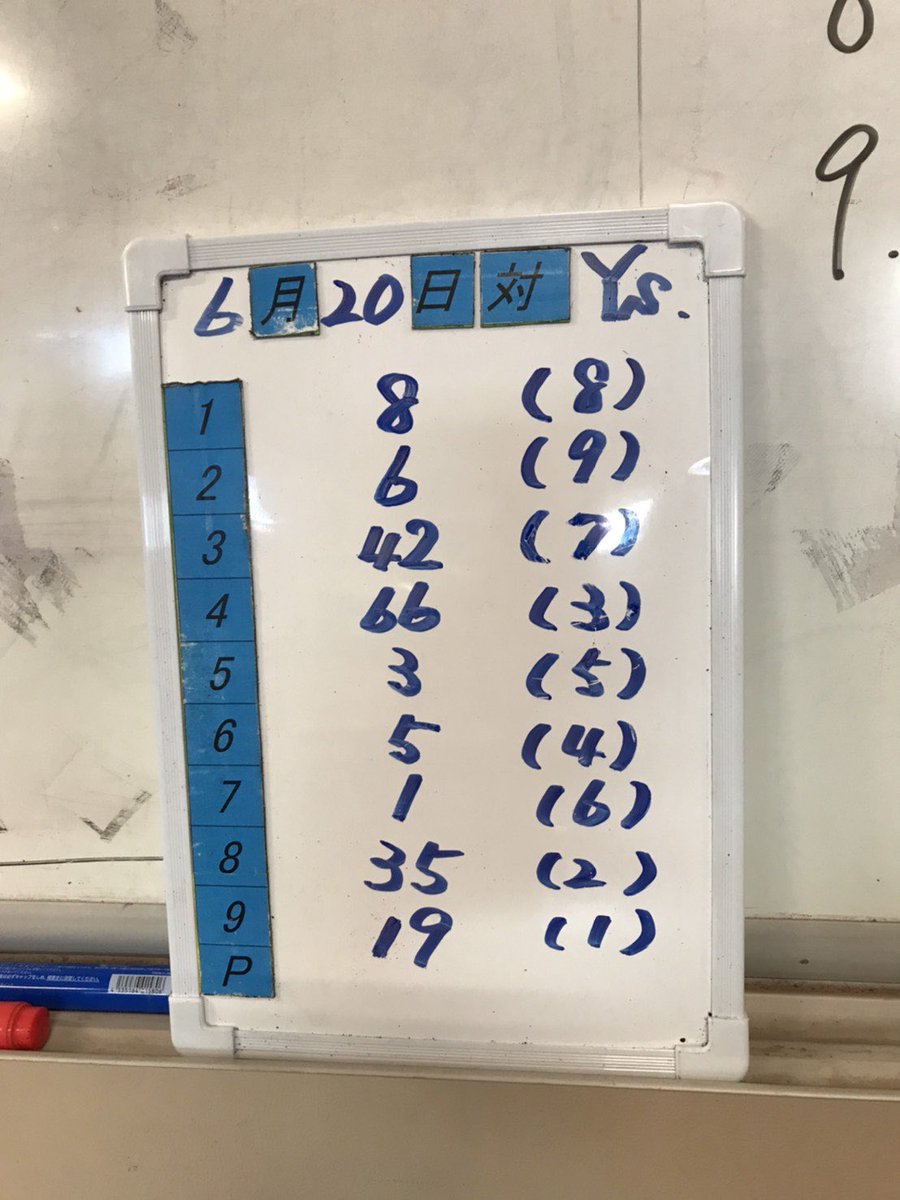 8
9.
6月20日対Ys.
1 8 (8)
2 6 (9)
3 42 (7)
4 66 (3)
5 3 (5)
6 5 (4)
7 1 (6)
8 35 (2)
9 19 (1)
P